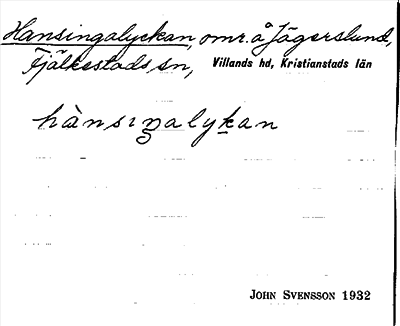 Hansingalyckan, omr. å Jägerslund,
Fjälkestads sn, Villands hd, Kristianstads län
hànsiŋalykan
JOHN SVENSSON 1932